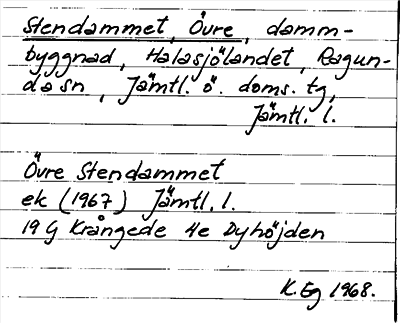 Stendammet, Övre, damm-
byggnad, Halasjölandet, Ragun-
da sn, Jämtl. ö. doms. tg,
Jämtl. l.
Övre Stendammet
ek (1967) Jämtl. l.
19 G Krångede 4e Dyhöjden
K. Eg 1968.